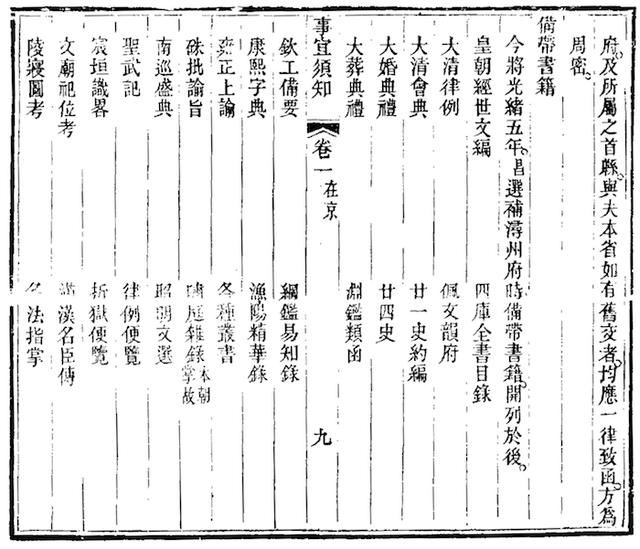 府及所屬之首縣與夫本省如有舊交者均應一律致函方爲
周密
備帶書籍
今將光緒五年昌選補潯州府時備帶書籍開列於後
皇朝經世文編 四庫全書目錄
大清律例 佩文韻府
大清會典 廿一史約編
大婚典禮 廿四史
大葬典禮 淵鑑類函
事宜須知 卷一 在京 九
欽工備要 綱鑑易知錄
康熙字典 漁陽精華錄
雍正上諭 各種叢書
硃批諭旨 嘯庭雜錄 本朝掌故
南巡盛典 昭朝文選
聖武記 律例便覽
宸垣識畧 折獄便覽
文廟祀位考 滿漢名臣傳
陵寢圖考 名法指掌